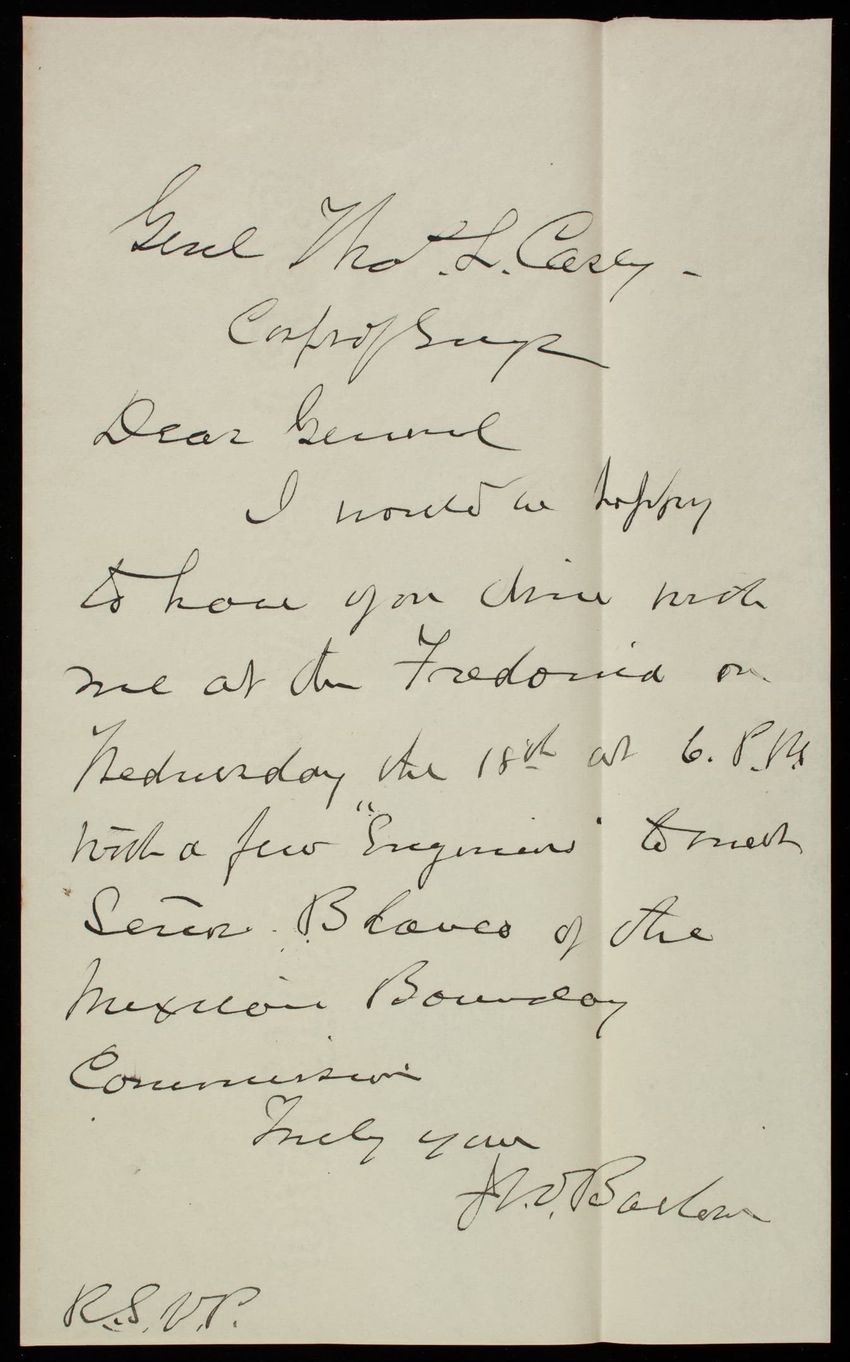 Genl Thos. L. Casey -
Corps of Engrs
Dear General
I would be happy
to have you dine with
me at the Fredonia on
Wednesday the 18th at 6. P.M.
with a few "Engineers" to meet
Señor Blanco of the
Mexican Boundary
Commission
Truly yours
J.W. Barlow
R.S.V.P.